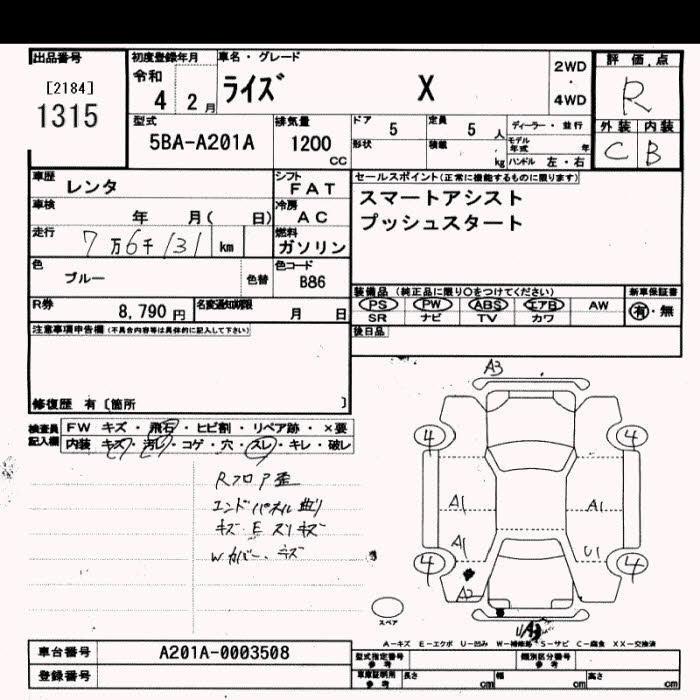 出品番号
[2184]
1315
初度登録年月
令和
4 2月
車名・グレード
ライズ X
2WD
・
4WD
評価点
R
外装 内装
C B
型式
5BA-A201A
排気量
1200
cc
ドア
5
定員
5 人
形状
積載
kg
ディーラー・並行
モデル年式 年
ハンドル 左・右
車歴
レンタ
シフト
FAT
車検
年 月( 日)
冷房
AC
走行
7万6千131 km
燃料
ガソリン
色
ブルー
色替
色コード
B86
R券
8,790円
名変通知期限
月 日
セールスポイント(正常に機能するものに限ります)
スマートアシスト
プッシュスタート
装備品(純正品に限り○をつけてください)
PS PW ABS エアB AW
SR ナビ TV カワ
新車保証書
有・無
後日品
注意事項申告欄(不具合内容等は具体的に記入して下さい)
修復歴 有〔箇所 〕
検査員記入欄
FW キズ・飛石・ヒビ割・リペア跡・×要
内装 キズ・汚レ・コゲ・穴・スレ・キレ・破レ
Rフロア歪
エンドパネル曲り
キズ E スリキズ
Wカバー、キズ
A3
4 4
A1 A1
A1 U1
4 4
A2
スペア
A-キズ E-エクボ U-凹み W-補修跡 S-サビ C-腐食 XX-交換済
車台番号
A201A-0003508
登録番号
型式指定番号
参考
類別区分番号
参考
車庫証明用
参考
長さ cm
幅 cm
高さ cm